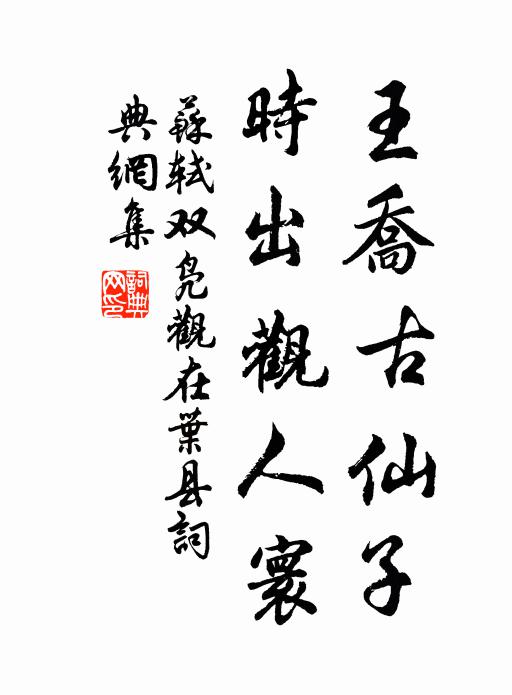 王喬古仙子
時出觀人寰
蘇軾双鳧觀在葉县詞
典網集
詞典网印